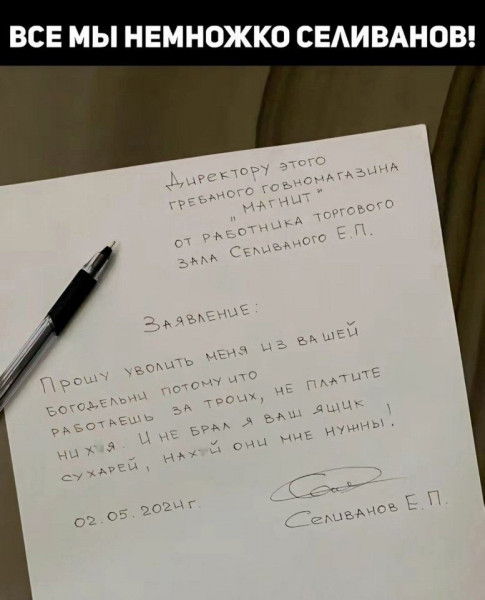 ВСЕ МЫ НЕМНОЖКО СЕЛИВАНОВ!
Директору этого
гребаного говномагазина
„Магнит"
от работника торгового
зала Селиваного Е.П.
Заявление:
Прошу уволить меня из вашей
богодельни потому что
работаешь за троих, не платите
ни х я. И не брал я ваш ящик
сухарей, нах й они мне нужны!
02.05.2024 г.
Селиванов Е.П.